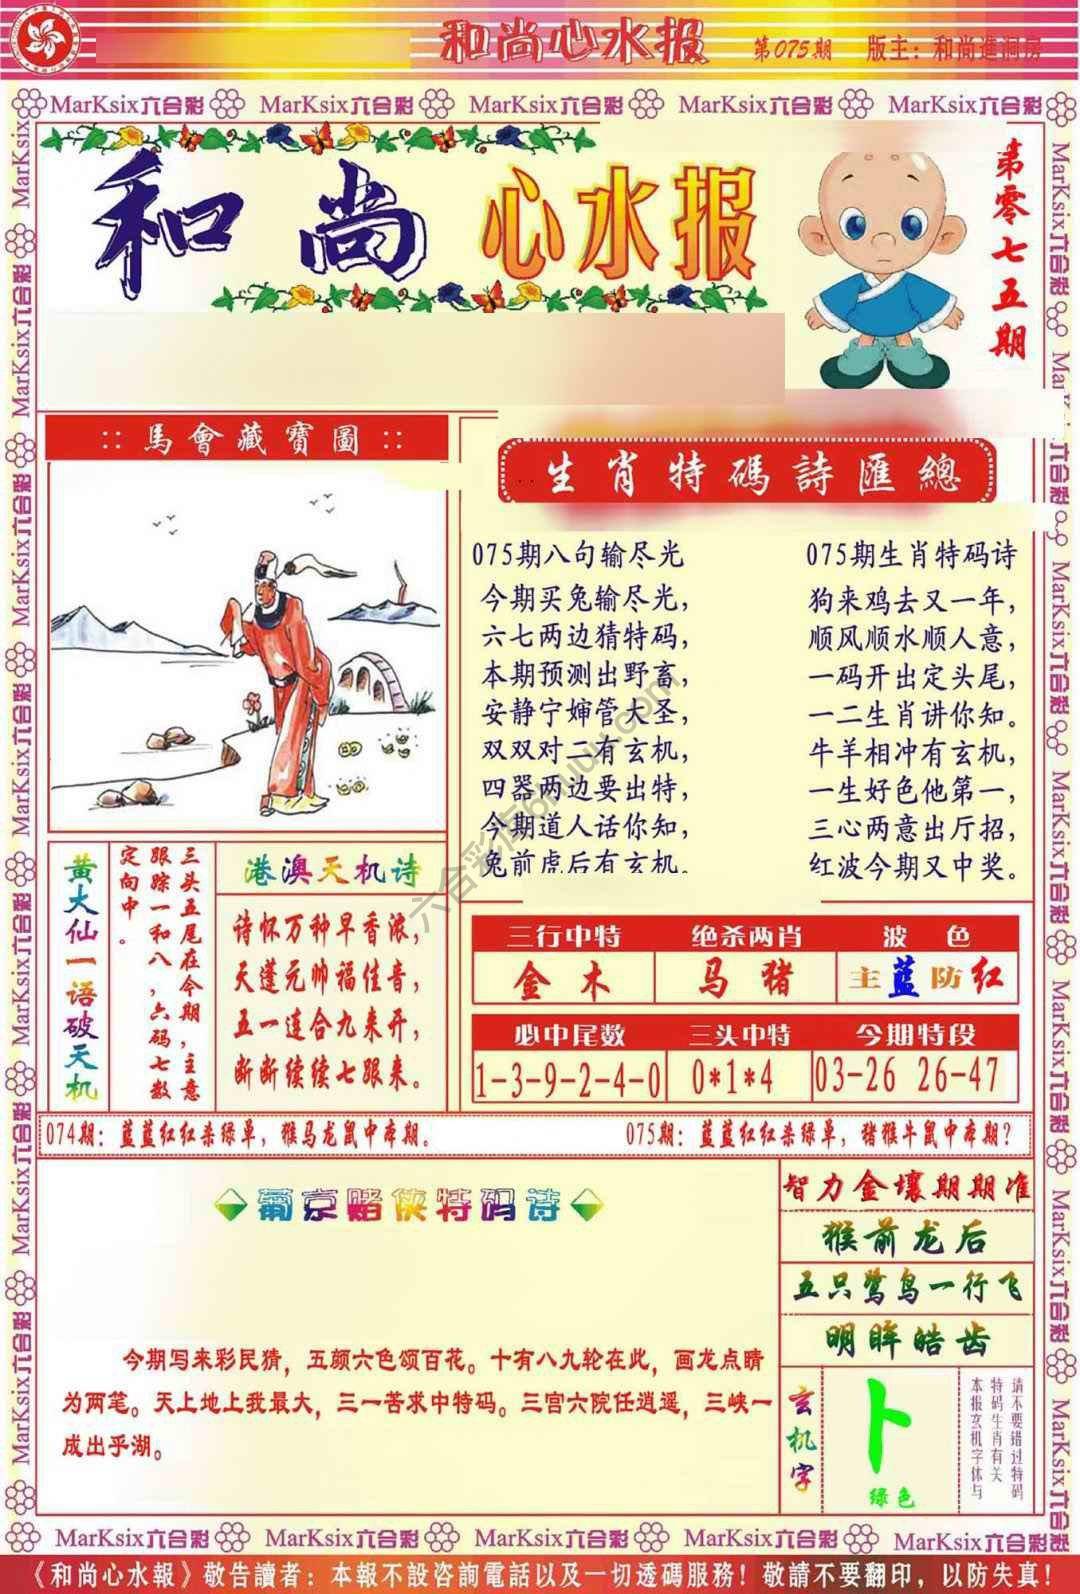 和尚心水报 第075期 版主：和尚進洞房
MarKsix六合彩 MarKsix六合彩 MarKsix六合彩 MarKsix六合彩 MarKsix六合彩
和尚心水报
第零七五期
::馬會藏寶圖::
生肖特碼詩匯總
075期八句输尽光
今期买兔输尽光，
六七两边猜特码，
本期预测出野畜，
安静宁婶管大圣，
双双对二有玄机，
四器两边要出特，
今期道人话你知，
兔前虎后有玄机。
075期生肖特码诗
狗来鸡去又一年，
顺风顺水顺人意，
一码开出定头尾，
一二生肖讲你知。
牛羊相冲有玄机，
一生好色他第一，
三心两意出厅招，
红波今期又中奖。
黄大仙一语破天机
三头五尾在今期，主意
跟踪一和八，六码七数
定向中。
港澳天机诗
诗怀万种早香浓，
天蓬元帅福佳音，
五一连合九来开，
断断续续七跟来。
三行中特 绝杀两肖 波色
金木 马猪 主蓝防红
必中尾数 三头中特 今期特段
1-3-9-2-4-0 0*1*4 03-26 26-47
074期：蓝蓝红红杀绿单，猴马龙鼠中本期。 075期：蓝蓝红红杀绿单，猪猴牛鼠中本期？
葡京赌侠特码诗
今期写来彩民猜，五颜六色颂百花。十有八九轮在此，画龙点睛
为两笔。天上地上我最大，三一苦求中特码。三宫六院任逍遥，三峡一
成出乎湖。
智力金壤期期准
猴前龙后
五只鹭鸟一行飞
明眸皓齿
玄机字
卜
绿色
请不要错过特码
特码生肖有关
本报玄机字体与
MarKsix六合彩 MarKsix六合彩 MarKsix六合彩 MarKsix六合彩 MarKsix六合彩
《和尚心水報》敬告讀者：本報不設咨詢電話以及一切透碼服務！敬請不要翻印，以防失真！